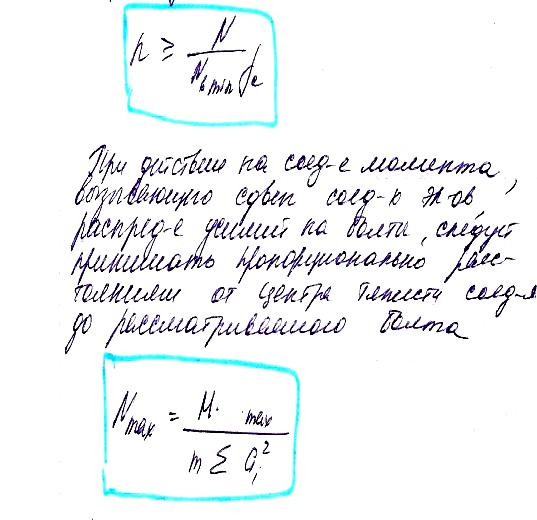 n ≥ N / N_b min γ_c
При действии на соед-е момента,
вызывающего сдвиг соед-х эл-ов,
распред-е усилий на болты следует
принимать пропорционально расс-
тояниям от центра тяжести соед-я
до рассматриваемого болта
N_max = M · max / m Σ a_i^2